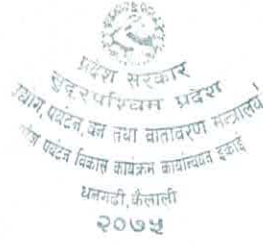 प्रदेश सरकार
सुदूरपश्चिम प्रदेश
उद्योग, पर्यटन, वन तथा वातावरण मन्त्रालय
पर्यटन विकास कार्यक्रम कार्यान्वयन इकाई
धनगढी, कैलाली
२०७५